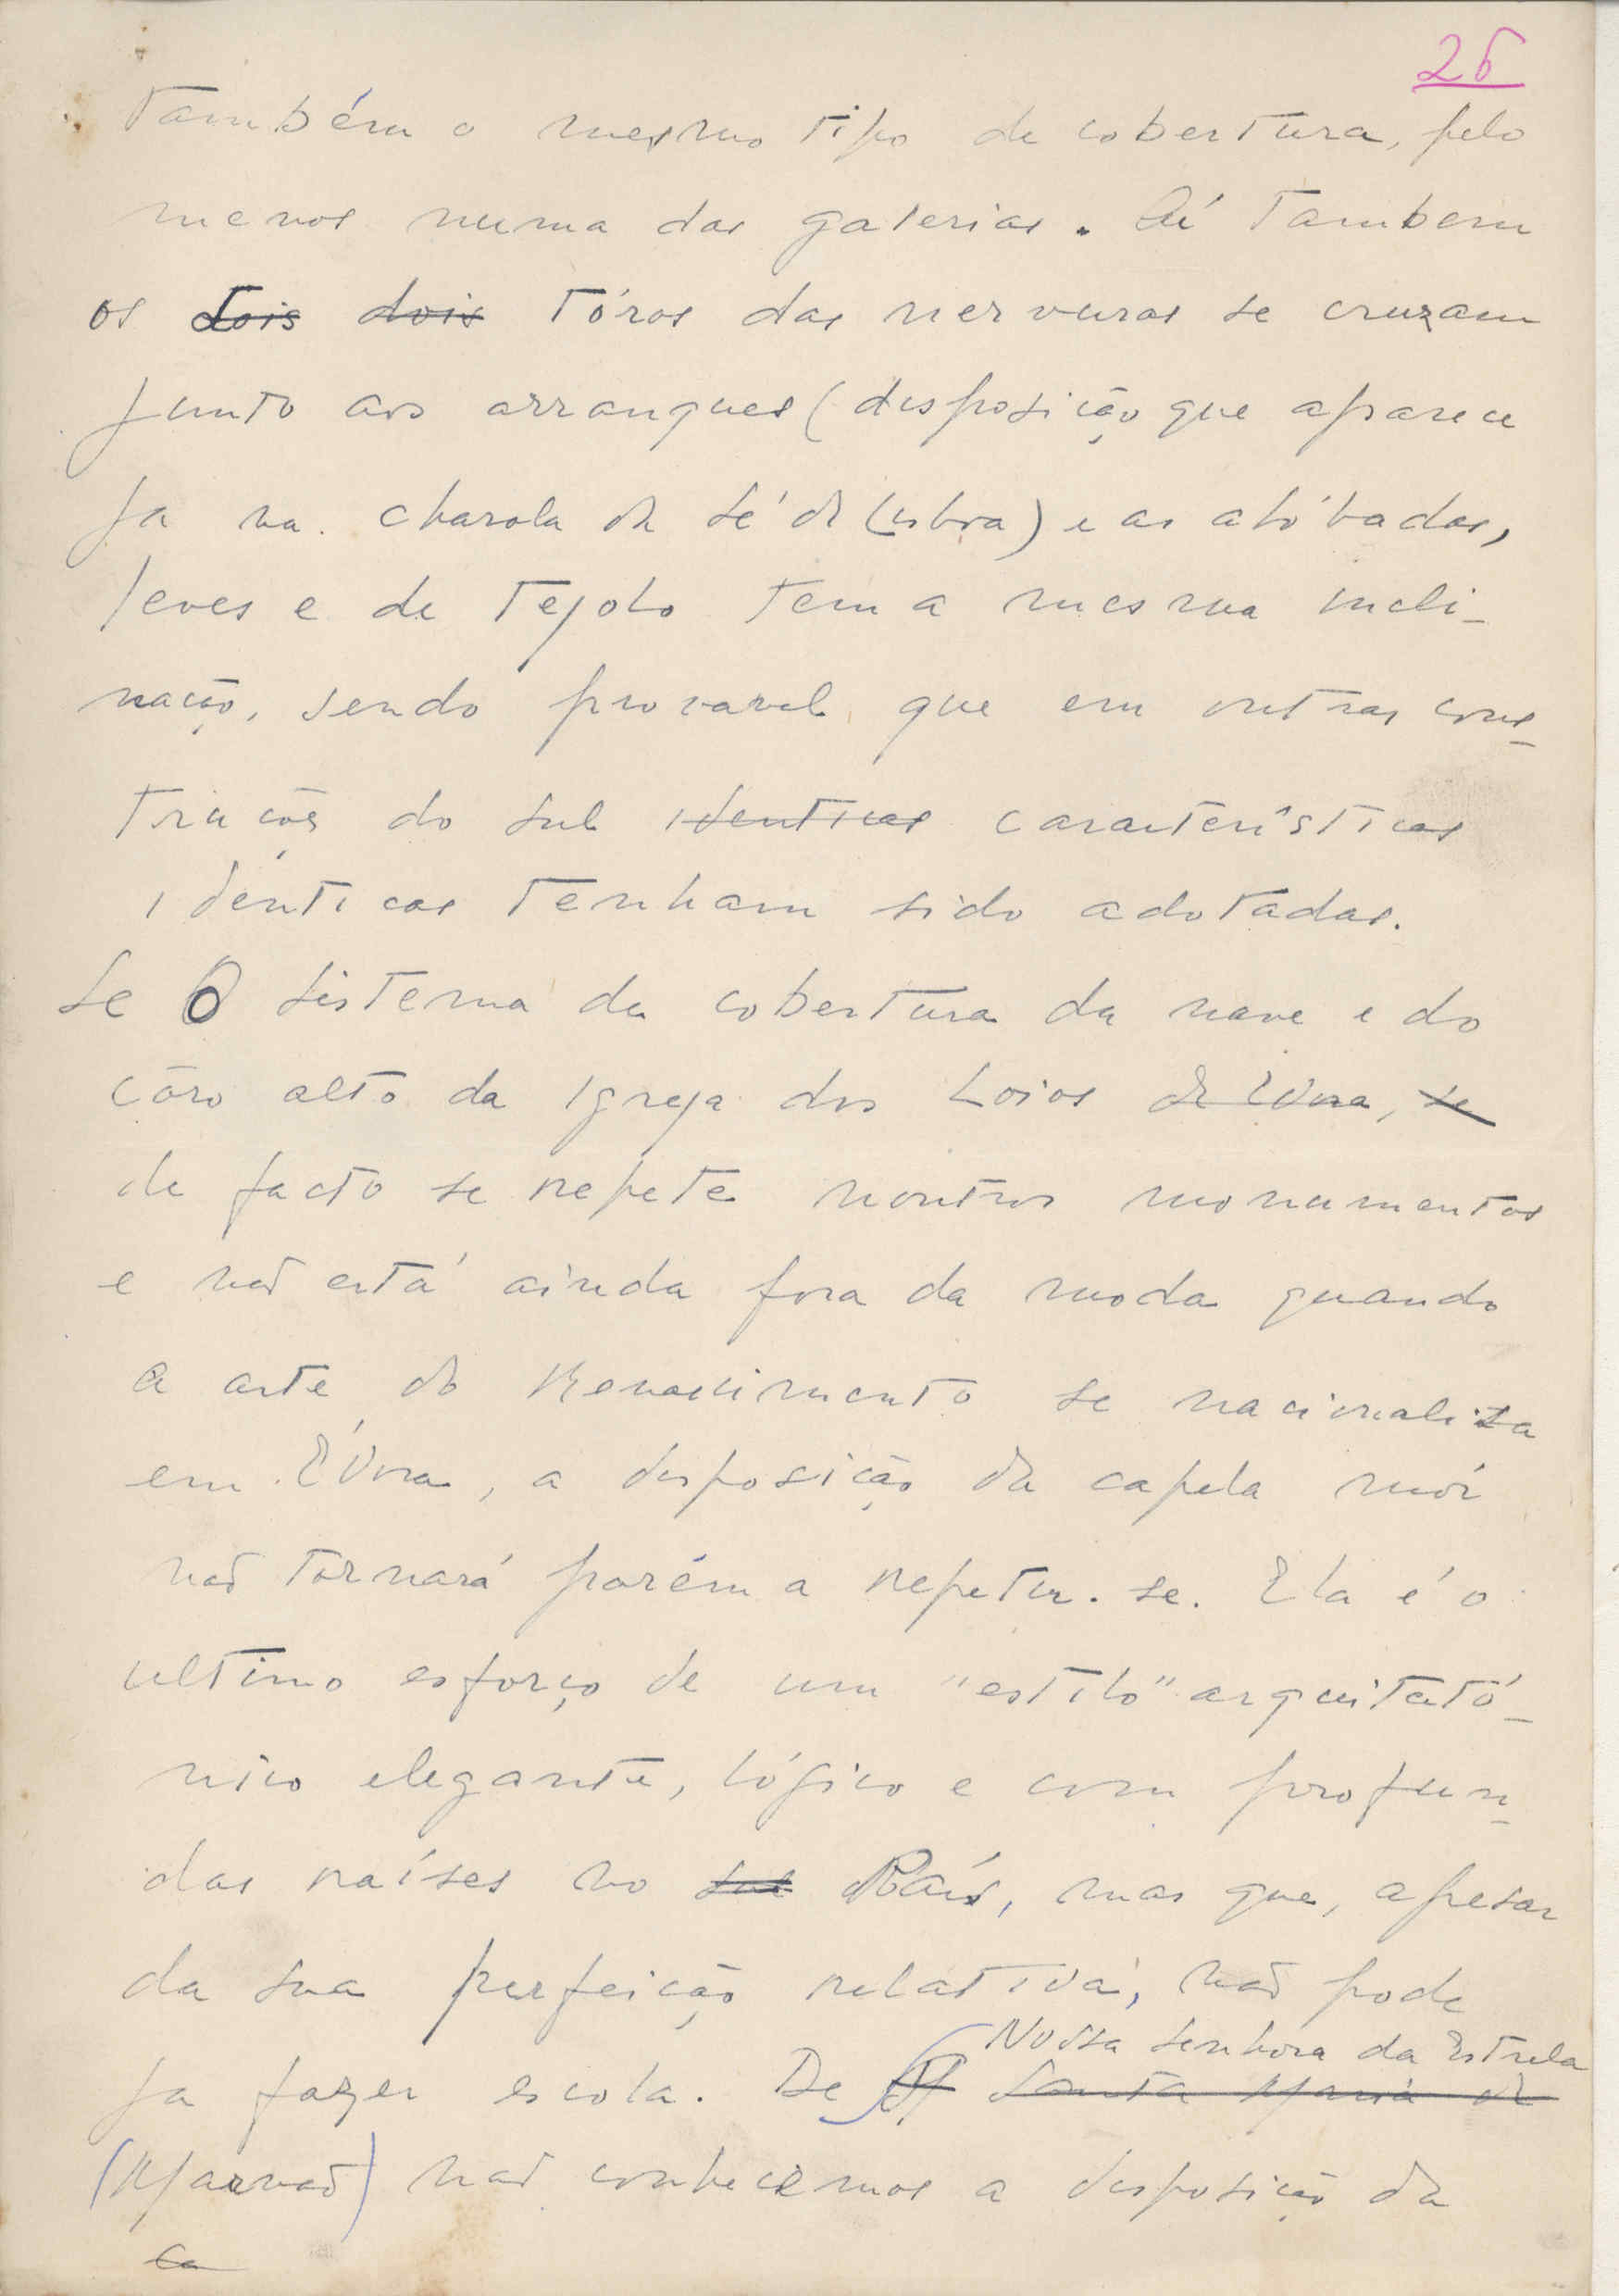 26
também o mesmo tipo de cobertura, pelo
menos numa das galerias. Aí tambem
os dois dois tóros das nervuras se cruzam
junto aos arranques (disposição que aparece
ja na charola da Sé de Lisboa) e as abóbadas,
leves e de tejolo tem a mesma incli-
nação, sendo provavel que em outras cons-
truções do sul identicas características
identicas tenham sido adotadas.
Se O sistema da cobertura da nave e do
côro alto da Igreja dos Loios de Evora, se
de facto se repete noutros monumentos
e não está ainda fora da moda quando
a arte do Renascimento se nacionaliza
em Évora, a disposição da capela mór
não tornará porém a repetir-se. Ela é o
ultimo esforço de um "estilo" arquitetó-
nico elegante, lógico e com profun-
das raíses no sul País, mas que, apesar
da sua perfeição relativa, não pode
Nossa Senhora da Estrela
ja fazer escola. De Santa Maria de
(Marvão) não conhecemos a disposição da
ca